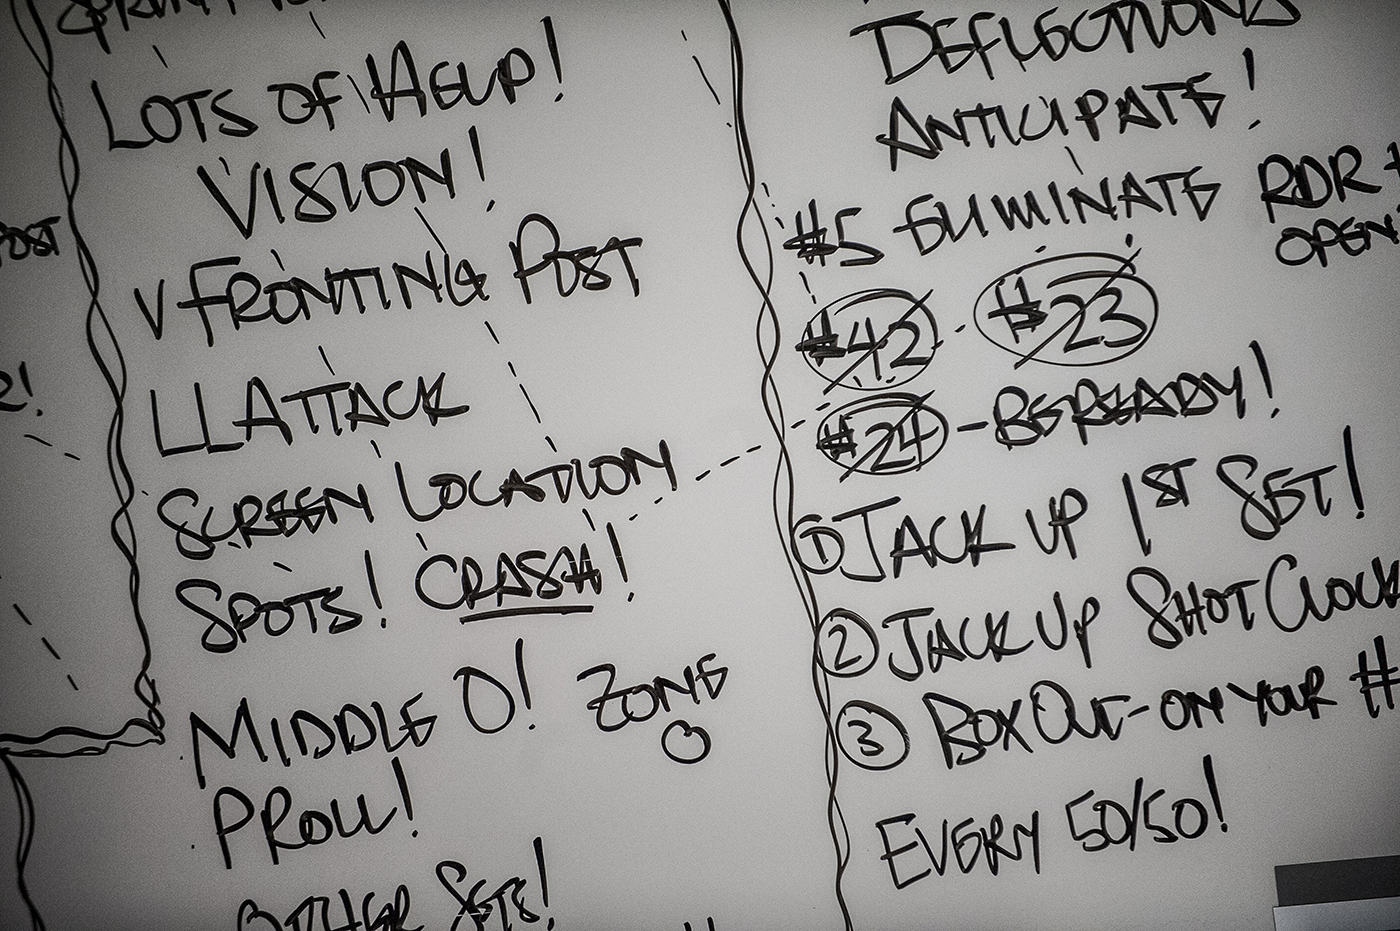 POST
R!
LOTS OF HELP!
VISION!
V FRONTING POST
LL ATTACK
SCREEN LOCATION
SPOTS! CRASH!
MIDDLE O! ZONE
O
PROLL!
OTHER SETS!
DEFLECTIONS
ANTICIPATE!
#5 ELIMINATE RDR +
OPEN
#42 - #23
#24 - BE READY!
① JACK UP 1ST SET!
② JACK UP SHOT CLOCK
③ BOX OUT - ON YOUR #
EVERY 50/50!